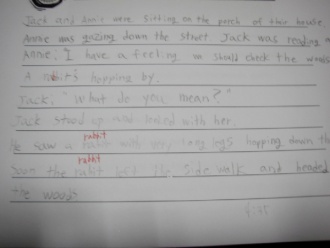 Jack and Annie were sitting on the porch of their house.
Annie was gazing down the street Jack was reading a
Annie, "I have a feeling we should check the woods
A rabit hopping by.
Jack, "What do you mean?"
Jack stood up and looked with her.
rabbit
He saw a with very long legs hopping down th
rabbit
Soon the rabit left the side walk and headed
the woods